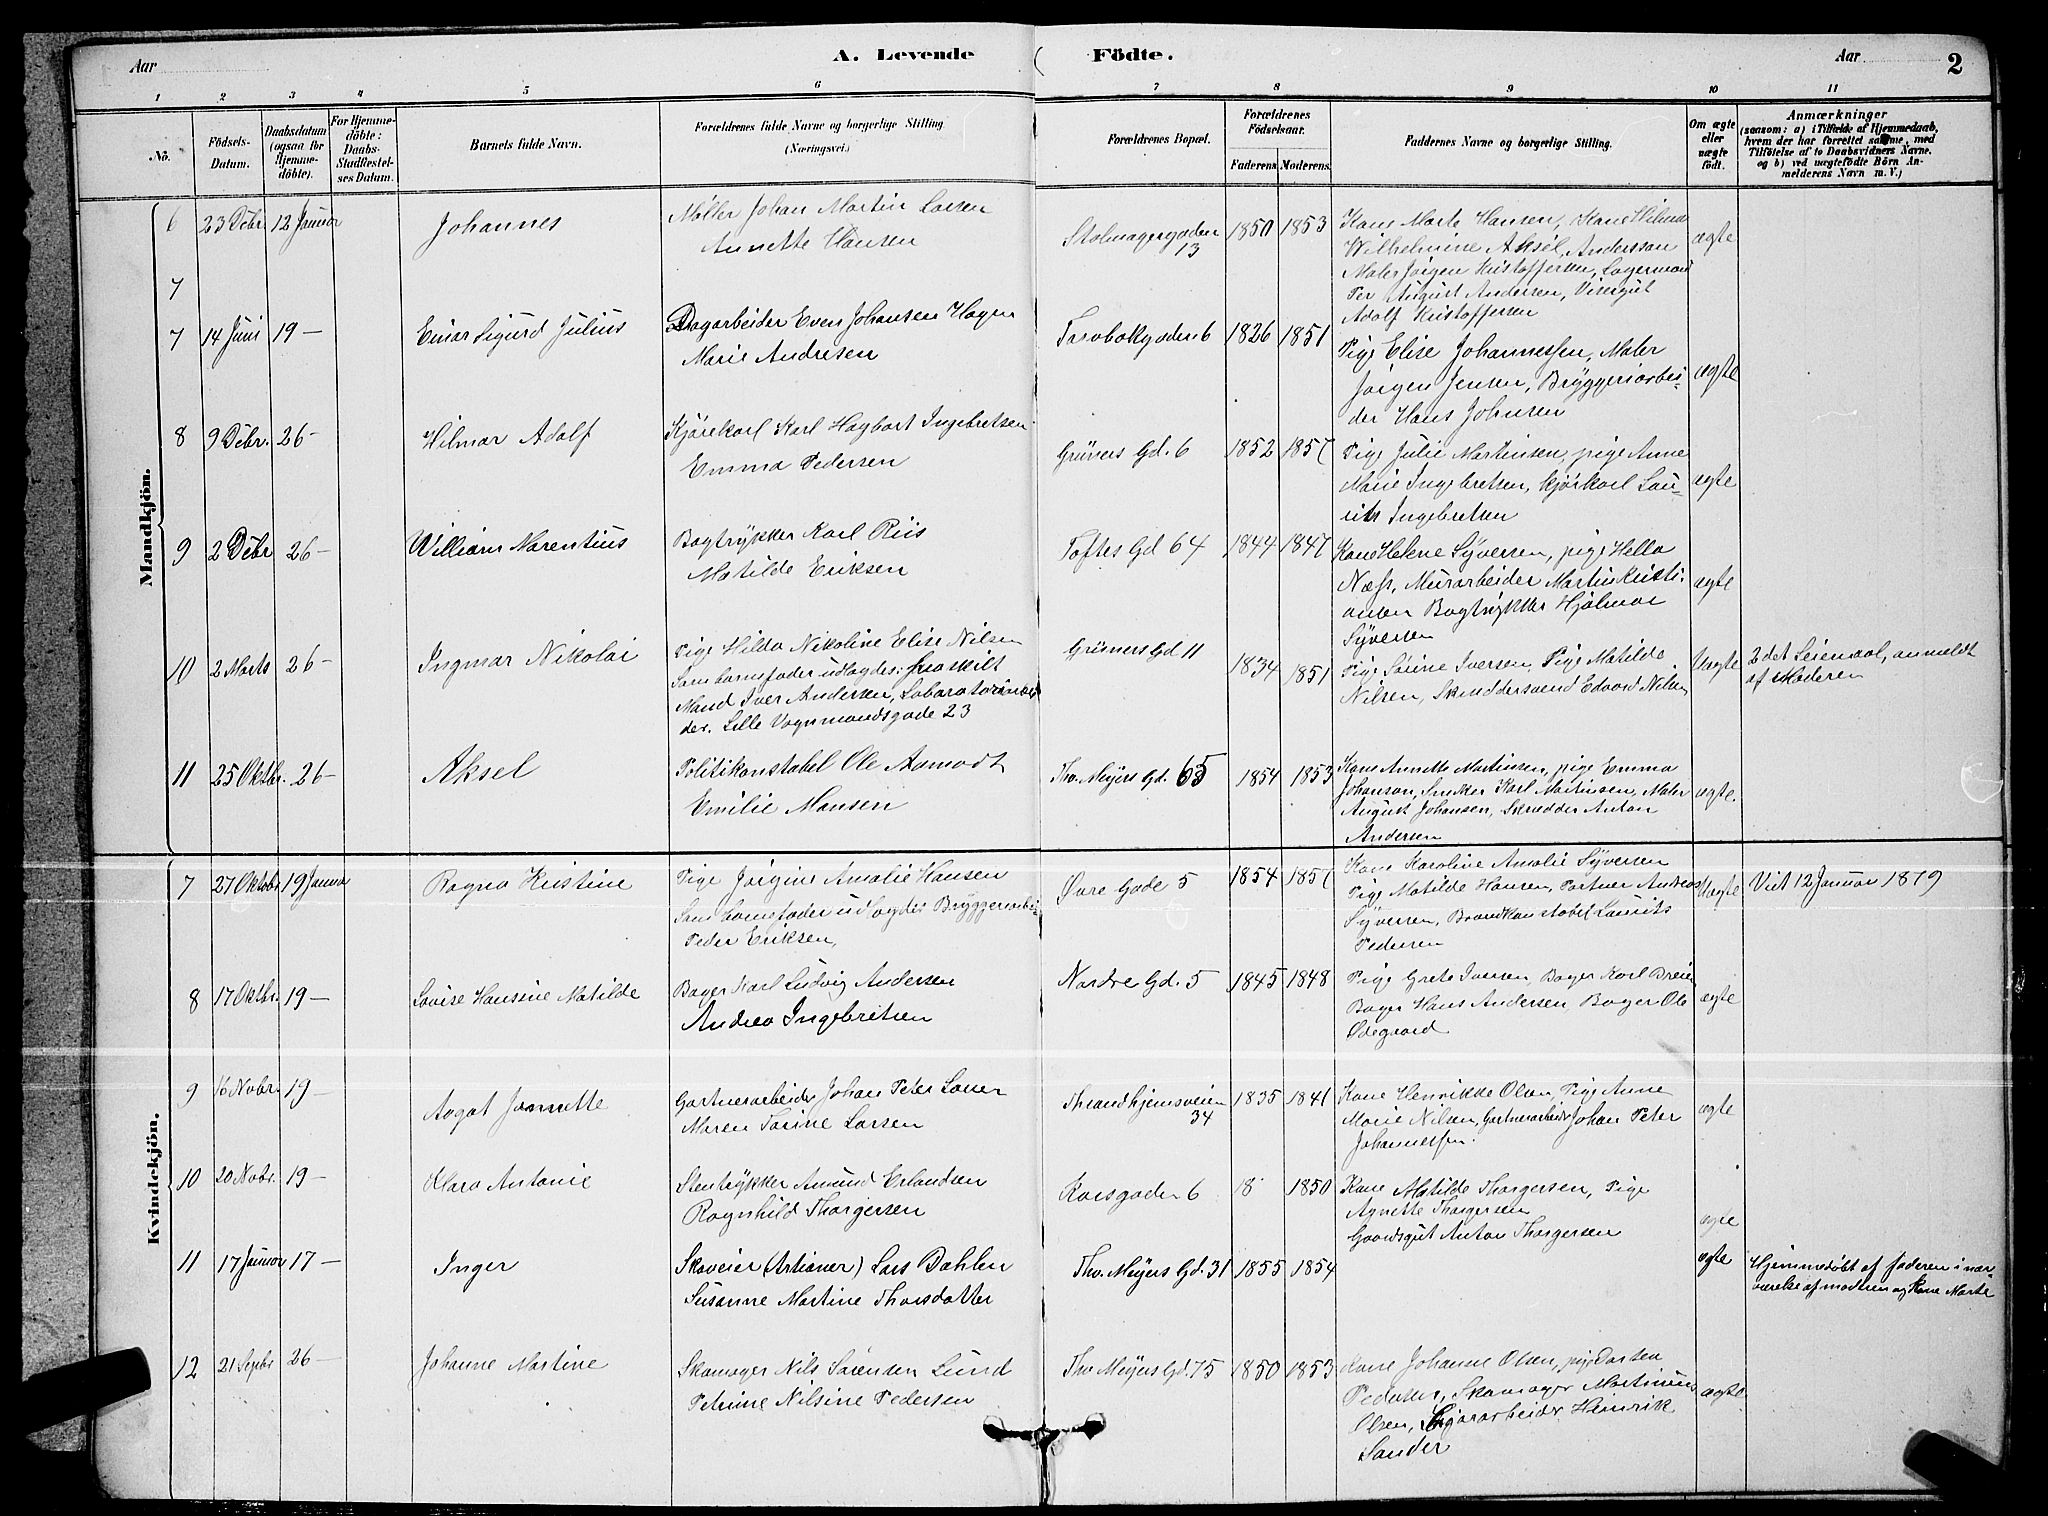 Aar
A. Levende
Födte.
Aar
2
1 2 3 4 5 6 7 8 9 10 11
No.
Födsels-Datum.
Daabsdatum (ogsaa for Hjemmedöbte).
For Hjemmedöbte: Daabs-Stadfestelses Datum.
Barnets fulde Navn.
Forældrenes fulde Navne og borgerlige Stilling (Næringsvei.)
Forældrenes Bopæl.
Forældrenes Födselsaar.
Faderens
Moderens.
Faddernes Navne og borgerlige Stilling.
Om ægte eller uægte födt.
Anmærkninger
(saasom: a) i Tilfælde af Hjemmedaab,
hvem der har forrettet samme, med
Tilföielse af to Daabsvidners Navne.
og b) ved uægtefödte Börn Anmelderens Navn m. V.)
Mandkjön.
6 23 Debr. 12 Januar Johannes
Møller Johan Martin Larsen
Annette Hansen
Stolmagergaden 13
1850 1853
Kone Marte Hansen, Kone Hilma
Wilhelmine Aksel, Andersson
Maler Jørgen Kristoffersen, Lagermand
Per August Andersen, Visergut
Adolf Kristoffersen
ægte
7
7 14 Juni 19 – Einar Sigurd Julius
Dagarbeider Even Johansen Hagen
Marie Andresen
6
1826 1851
Pige Elise Johannessen, Maler
Jørgen Jensen, Bryggeriarbei-
der Hans Johnsen
ægte
8 9 Debr. 26 – Hilmar Adolf
Kjørekarl Karl Hagbart Ingebretsen
Emma Pedersen
Grüners Gd. 6
1852 1857
Pige Julie Martinsen, pige Anne
Marie Ingebretsen, kjørkarl Lau-
rits Ingebretsen
ægte
9 2 Debr 26 – William Marentius
Bogtrykker Karl Riis
Matilde Eriksen
Toftes Gd 64
1844 1847
Kone Helene Syversen, pige Hella
Næss, Murarbeider Martin Kristi-
ansen Bogtrykker Hjalmar
Syversen
ægte
10 2 Marts 26 – Ingmar Nikolai
Pige Hilda Nikoline Elise Nilsen
Som barnefader udlagdes: fraskilt
Mand Iver Andersen, Laboratoriearbei
der. Lille Vognmandsgade 23
Grüners Gd 11
1834 1851
Pige Laurine Iversen, Pige Matilde
Nilsen, Skræddersvend Edvard Nilsen
Uægte
2det Leiemaal, anmeldt
af Moderen
11 25 Oktbr. 26 – Aksel
Politikonstabel Ole Aamodt
Emilie Hansen
Thv. Meyers Gd. 65
1854 1853
Kone Annette Martinsen, pige Emma
Johanson, Snekker Karl Martinsen, Maler
August Johansen, Skrædder Anton
Andersen
ægte.
Kvindekjön.
7 27 Oktobr 19 Januar Ragna Kristine
Pige Jørgine Amalie Hansen
Som barnefader udlagdes Bryggeriarbei-
Peder Eriksen,
Øvre Gade 5
1854 1857
Kone Karoline Amalie Syversen
Pige Matilde Hansen, Portner Andreas
Syversen, Brandkonstabel Laurits
Pedersen
Uægte
Viet 12 Januar 1879
8 17 Oktbr. 19 – Lovise Hansine Matilde
Bager Karl Ludvig Andersen
Andrea Ingebretsen
Nordre Gd. 5
1845 1848
Pige Grete Jonsen, Bager Karl Breien
Bager Hans Andersen, Bager Ole
Ødegaard
ægte
9 16 Nobr. 19 – Aagot Jannette
Gartnerarbeider Johan Peter Larsen
Maren Torine Larsen
Throndhjemsveien 34
1835 1841
Kone Henrikke Olsen, Pige Anne
Marie Nilsen, Gartnerarbeider Johan Peter
Johannessen.
ægte
10 20 Nobr. 19 – Klara Antonie
Stentrykker Amund Erlandsen
Ragnhild Thorgersen
Korsgaden 6
18 1850
Kone Matilde Thorgersen, Pige
Agnette Thorgersen
Gaardsgut Anton Thorgersen
ægte
11 17 Januar 17 – Inger
Skoveier (Artianer) Lars Dahlen
Susanne Martine Thorsdatter
Thv. Meyers Gd. 31
1855 1854
ægte
Hjemmedøbt af faderen i nær-
værelse af modren og Kone Marte
12 21 Septbr 26 – Johanne Martine
Skomager Nils Sørensen Lund
Petrine Nilsine Pedersen
Thv Meyers Gd. 75
1850 1853
Kone Johanne Olsen, pige Dortea
Pedersen, Skomager Martinius
Olsen, Hinrik
Sander
ægte